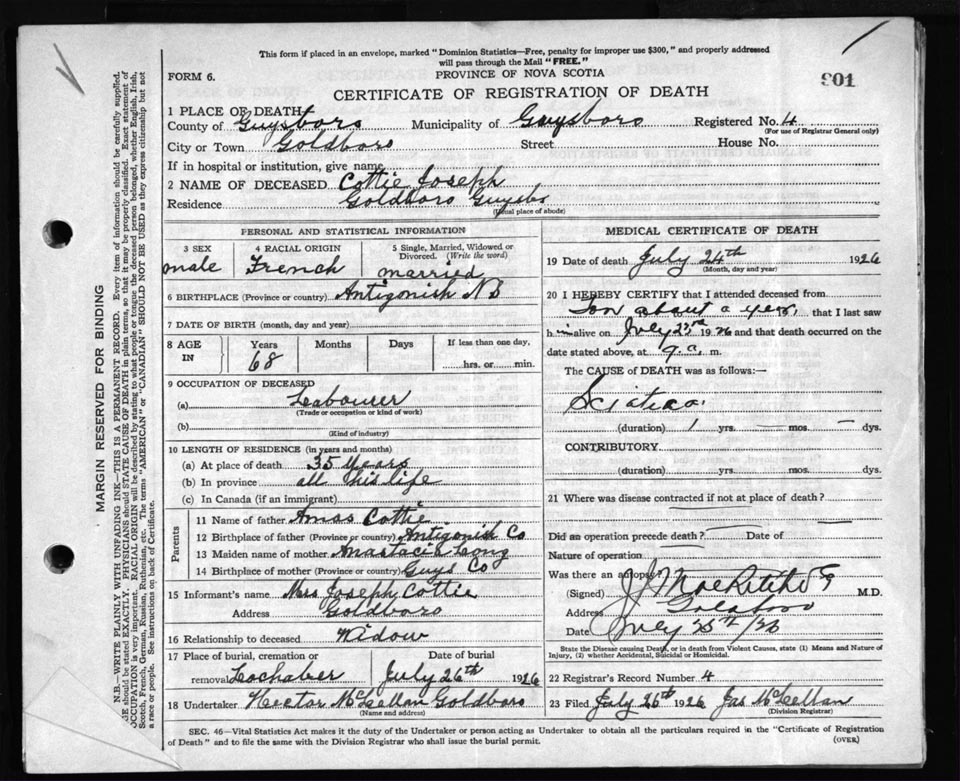 This form if placed in an envelope, marked "Dominion Statistics—Free, penalty for improper use $300," and properly addressed
will pass through the Mail "FREE."
FORM 6.
PROVINCE OF NOVA SCOTIA
901
CERTIFICATE OF REGISTRATION OF DEATH
1 PLACE OF DEATH
County of Guysboro Municipality of Guysboro Registered No. 4
(For use of Registrar General only)
City or Town Goldboro Street House No.
If in hospital or institution, give name
2 NAME OF DECEASED Cottie Joseph
Residence Goldboro Guysbo
(Usual place of abode)
PERSONAL AND STATISTICAL INFORMATION
3 SEX 4 RACIAL ORIGIN 5 Single, Married, Widowed or Divorced. (Write the word)
male French married
6 BIRTHPLACE (Province or country) Antigonish NB
7 DATE OF BIRTH (month, day and year)
8 AGE IN Years Months Days If less than one day,
68 hrs. or min.
9 OCCUPATION OF DECEASED
(a) Labourer
(Trade or occupation or kind of work)
(b)
(Kind of industry)
10 LENGTH OF RESIDENCE (in years and months)
(a) At place of death 35 Years
(b) In province all his life
(c) In Canada (if an immigrant)
Parents
11 Name of father Amos Cottie
12 Birthplace of father (Province or country) Antigonish Co
13 Maiden name of mother Anastacia Long
14 Birthplace of mother (Province or country) Guys Co
15 Informant's name Mrs Joseph Cottie
Address Goldboro
16 Relationship to deceased Widow
17 Place of burial, cremation or Date of burial
removal Lochaber July 26th 1926
18 Undertaker Hector McLellan Goldboro
(Name and address)
MEDICAL CERTIFICATE OF DEATH
19 Date of death July 24th 1926
(Month, day and year)
20 I HEREBY CERTIFY that I attended deceased from
for about a year, that I last saw
him alive on July 23rd 1926 and that death occurred on the
date stated above, at 9 a. m.
The CAUSE of DEATH was as follows:—
Sciatica
(duration) 1 yrs. — mos. — dys.
CONTRIBUTORY
(duration) yrs. mos. dys.
21 Where was disease contracted if not at place of death?
Did an operation precede death? Date of
Nature of operation
Was there an autopsy?
(Signed) M.D.
Address Goldboro
Date July 25th/26
State the Disease causing Death, or in death from Violent Causes, state (1) Means and Nature of
Injury, (2) whether Accidental, Suicidal or Homicidal.
22 Registrar's Record Number 4
23 Filed July 26th 1926 Jas McLellan
(Division Registrar)
SEC. 46—Vital Statistics Act makes it the duty of the Undertaker or person acting as Undertaker to obtain all the particulars required in the "Certificate of Registration
of Death" and to file the same with the Division Registrar who shall issue the burial permit.
(OVER)
MARGIN RESERVED FOR BINDING
N.B.—WRITE PLAINLY WITH UNFADING INK—THIS IS A PERMANENT RECORD. Every item of information should be carefully supplied.
AGE should be stated EXACTLY. PHYSICIANS should STATE CAUSE OF DEATH in plain terms, so that it may be properly classified. Exact statement of
OCCUPATION is very important. RACIAL ORIGIN will be described by stating to what people or tongue the deceased person belonged, whether English, Irish,
Scotch, French, German, Russian, Ruthenian, etc. The terms "AMERICAN" or "CANADIAN" SHOULD NOT BE USED as they express citizenship but not
a race or people. See instructions on back of Certificate.